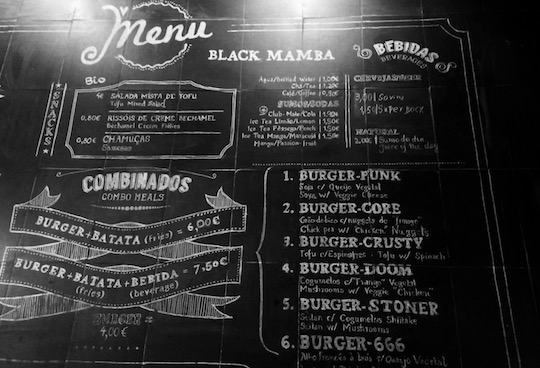 Menu
BLACK MAMBA
BEBIDAS
BEVERAGES
SNACKS
Bio
4€ SALADA MISTA DE TOFU
Tofu Mixed Salad
0,80€ RISSÓIS DE CREME BECHAMEL
Bechamel Cream Patties
0,80€ CHAMUÇAS
Samosas
Água/Bottled Water 1,00€
Chá/Tea
Café/Coffee
SUMO/SODAS
Club-Mate/Cola
Ice Tea Limão/Lemon
Ice Tea Pêssego/Peach
Ice Tea Manga/Maracujá
Mango/Passion-Fruit
CERVEJAS
3,00 Sovina
1,50 Super Bock
NATURAL
2,00 Sumo do dia
Juice of the day
COMBINADOS
COMBO MEALS
BURGER+BATATA (fries) = 6,00€
BURGER+BATATA+BEBIDA = 7,50€
(fries) (beverage)
BURGER =
4,00€
1. BURGER-PUNK
Soja c/ Queijo Vegetal
Soya w/ Veggie Cheese
2. BURGER-CORE
Grão de bico c/nuggets de "frango"
Chick pea w/ "Chicken" Nuggets
3. BURGER-CRUSTY
Tofu c/Espinafres - Tofu w/ Spinach
4. BURGER-DOOM
Cogumelos c/"Frango" Vegetal
Mushrooms w/ Veggie "Chicken"
5. BURGER-STONER
Seitan c/ Cogumelos Shiitake
Seitan w/ Mushrooms
6. BURGER-666
Alho francês à brás c/ Queijo Vegetal